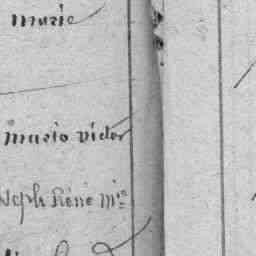 Marie
Mario victor
seph Réné Mie